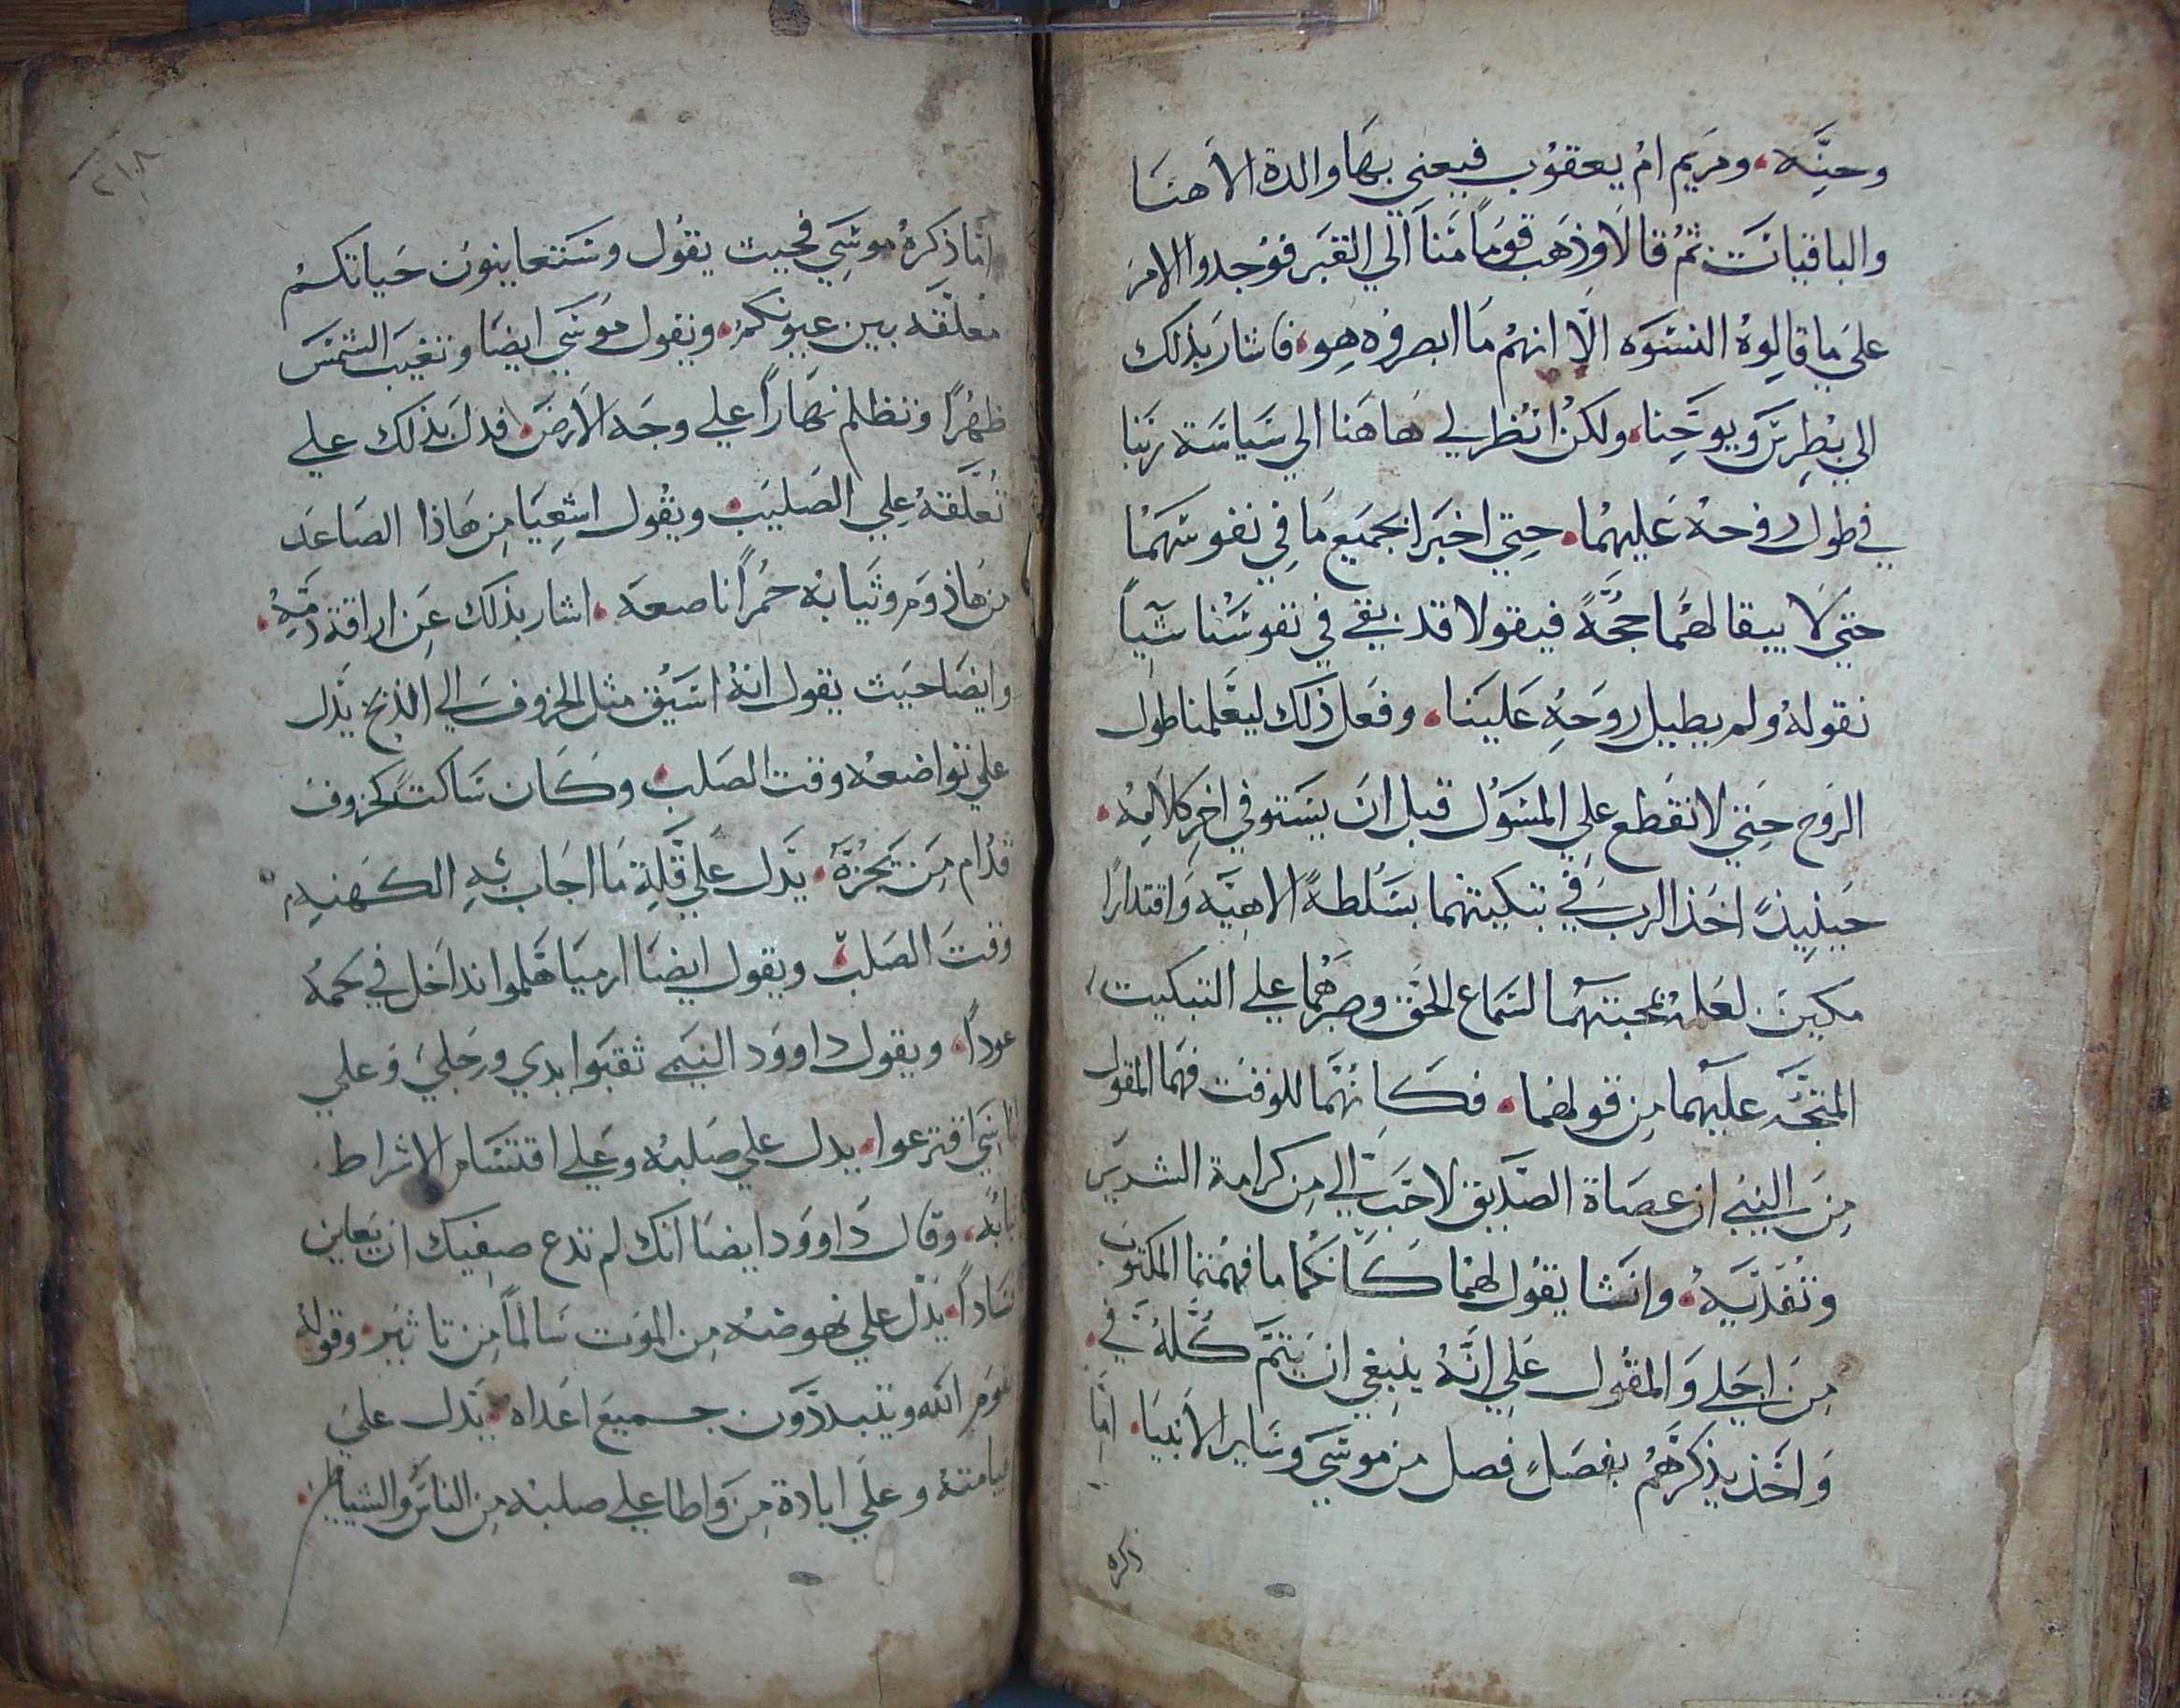 وحنِّه ومريم امُ يعقوُب فيعني بها والدة الاهنا
والباقيات ثمُ قالا وذهب قومًا منا الي القبر فوجدوا الامر
علي ما قالوهُ النسوه الا انهمُ ما ابصروه هو فاشار بذلك
الي بطرس ويوحنا ولكن انظر لي هاهنا الي سياسة ربنا
في طول روحهُ عليهما حتي اخبرا بجميع ما في نفوسهما
حتي لا يبقا لهما حجّةً فيقولا قد بقي في نفوسنا شياً
نقولهُ ولم يطيل روحهِ علينا وفعل ذلك ليعّلمنا طول
الروح حتي لا نقطع علي المسوُل قبل ان يستوفي اخر كلامهُ
حينيذٍ اخذ الرب في تبكيتهما بسلطةً الاهيّه واقتدارًا
مكين لعلمهُ بمحبتهما لسماع الحق وصبرهُما علي التبكيت
المتجّه عليهما من قولهما فكانهّما للوقت فهما المقول
من النبي ان عصاة الصدّيق لاحبّ الي من كرامة الشرير
وتفدّيهُ وانشا يقوُل لهما كانكُما ما فهمُتما المكتوُب
من اجلي والمقوُل علي انّهُ ينبغي ان يتمّ كُلّهُ فيّ
واخذ يذكرّهُم بفصلٍ فصل من موسي وساير الانبيا امّا
ذكره
٢١٨
امّا ذكرهُ موسي فحيث يقوُل وستعاينون حياتكمُ
معلّقه بين عيونكمُ ويقول موسي ايضا وتغيب الشمس
ظهرًا وتظلم نهارًا علي وجه الارض فدل بذلك علي
تعلّقهُ علي الصليب ويقوُل اشعيا من هاذا الصاعد
من هاذوم وثيابهُ حمُرًا ناصعه اشار بذلك عن اراقة دمّهُ
وايضا حيث يقول انهُ اسيق مثل الخروف الي الذبح يدّل
علي تواضعهُ وقت الصلب وكان ساكتً كخروف
قدُام من يجزّهُ يدّل علي قلّةِ ما اجاب بهِ الكهنه
وقت الصلب ويقول ايضا ارميا هلّموا نداخل في لحمهُ
عودًا ويقول داوود النبي ثقبوا يدي ورجلي وعلي
اقترعوا يدل علي صلبهُ وعلي اقتسام الاشراط
وقال داوود ايضا انك لم تدع صفيك ان يعاين
فساداً يدّل علي نهوضهُ من الموت سالماً من تاثير وقوله
يقوم الله ويتبدّدون جميع اعداه يدّل علي
قيامتهُ وعلي ابادة من واطا علي صلبه من الناس والشياطين